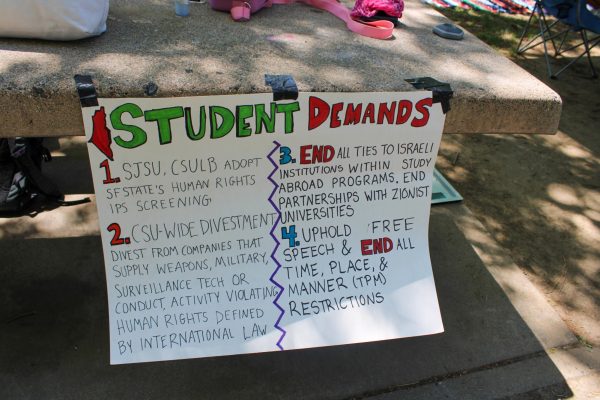 STUDENT DEMANDS
1. SJSU, CSULB ADOPT
SFSTATE'S HUMAN RIGHTS
IPS SCREENING
2. CSU-WIDE DIVESTMENT
DIVEST FROM COMPANIES THAT
SUPPLY WEAPONS, MILITARY,
SURVEILLANCE TECH OR
CONDUCT, ACTIVITY VIOLATING
HUMAN RIGHTS DEFINED
BY INTERNATIONAL LAW
3. END ALL TIES TO ISRAELI
INSTITUTIONS WITHIN STUDY
ABROAD PROGRAMS. END
PARTNERSHIPS WITH ZIONIST
UNIVERSITIES
4. UPHOLD FREE
SPEECH & END ALL
TIME, PLACE, &
MANNER (TPM)
RESTRICTIONS